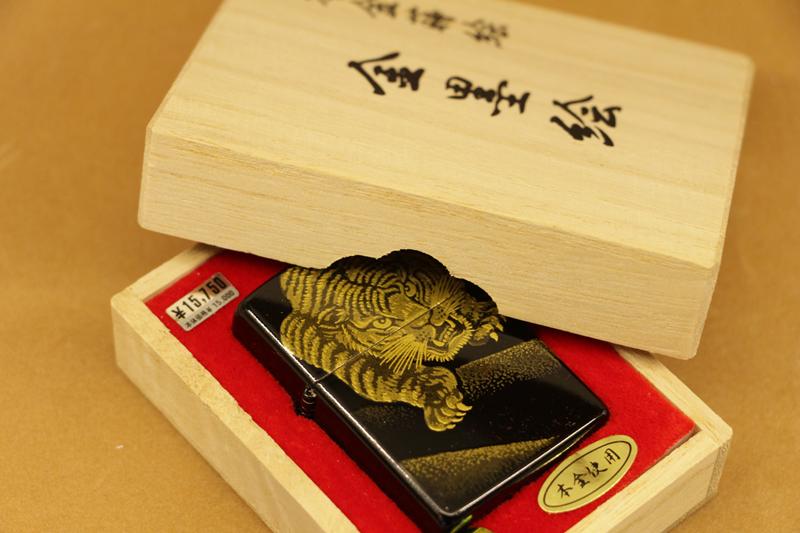 本金蒔絵
金墨絵
¥15,750
本体価格¥15,000
本金使用